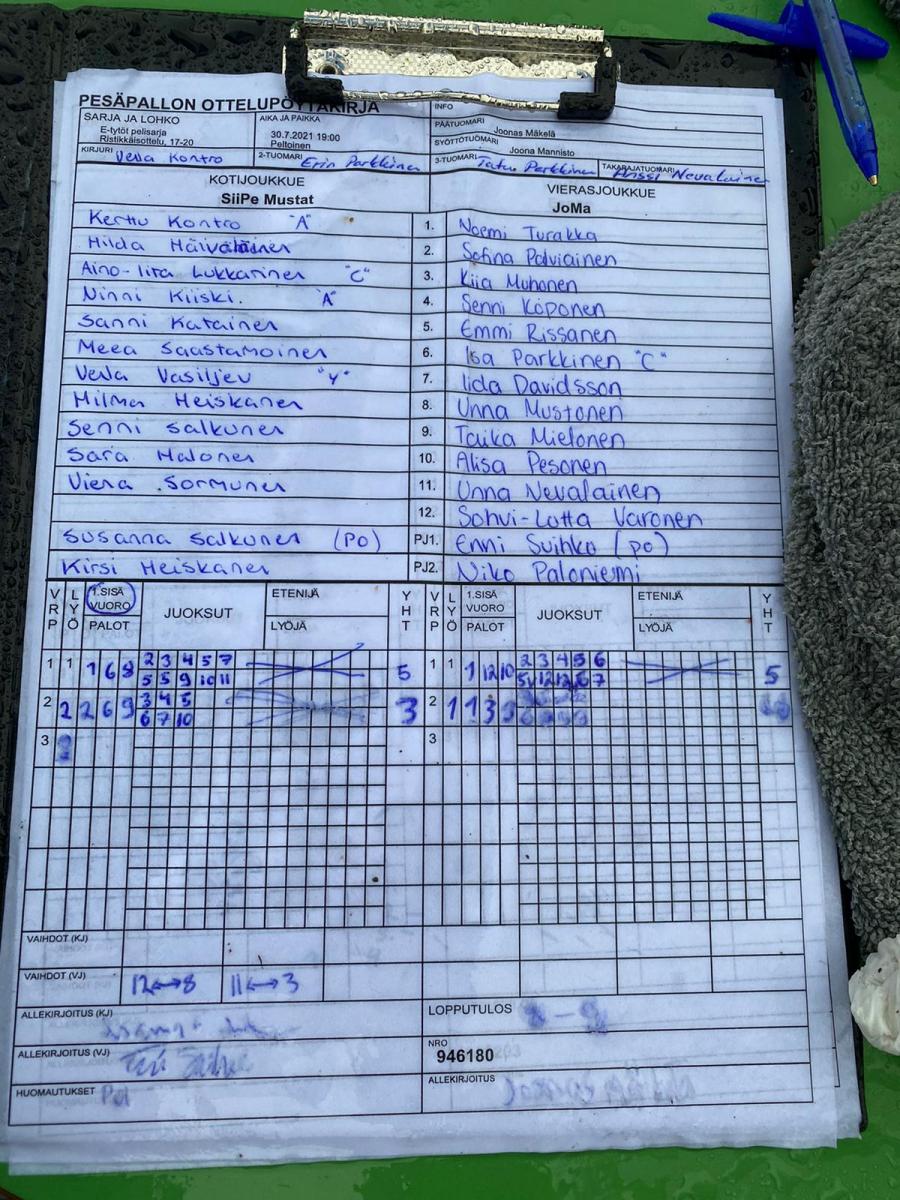 PESÄPALLON OTTELUPÖYTÄKIRJA
INFO
SARJA JA LOHKO
E-tytöt pelisarja
Ristikkäisottelu, 17-20
AIKA JA PAIKKA
30.7.2021 19:00
Peltoinen
PÄÄTUOMARI Joonas Mäkelä
SYÖTTÖTUOMARI Joona Mannisto
KIRJURI Veda Kontro
2-TUOMARI Erin Parkkinen
3-TUOMARI Tatu Parkkinen
TAKARAJATUOMARI Nevalainen
KOTIJOUKKUE
SiiPe Mustat
VIERASJOUKKUE
JoMa
Kerttu Kontro "A" 1. Noemi Turakka
Hilda 2. Sofina Palviainen
Aino-Iita Lukkarinen "C" 3. Kiia Muhonen
Ninni Kiiski. "A" 4. Senni Koponen
Sanni Katainen 5. Emmi Rissanen
Meea Saastamoinen 6. Isa Parkkinen "C"
Veda Vasiljev "Y" 7. Iida Davidsson
Hilma Heiskanen 8. Unna Mustonen
Senni Salkunen 9. Taika Mielonen
Sara Halonen 10. Alisa Pesonen
Viena Sormunen 11. Unna Nevalainen
12. Sohvi-Lotta Varonen
Susanna Salkunen (PO) PJ1. Enni Suihko (po)
Kirsi Heiskanen PJ2. Niko Paloniemi
VRP LYÖ 1.SISÄ VUORO PALOT JUOKSUT ETENIJÄ LYÖJÄ YHT VRP LYÖ 1.SISÄ VUORO PALOT JUOKSUT ETENIJÄ LYÖJÄ YHT
1 1 1 6 8 2 3 4 5 7 5 1 1 1 12 10 2 3 4 5 6 5
5 8 9 10 11
2 2 2 6 9 3 4 5 3 2 1 1 3 9
6 7 10
3 3
VAIHDOT (KJ)
VAIHDOT (VJ) 12↔8 11↔3
ALLEKIRJOITUS (KJ)
LOPPUTULOS
ALLEKIRJOITUS (VJ)
NRO
946180
HUOMAUTUKSET
ALLEKIRJOITUS